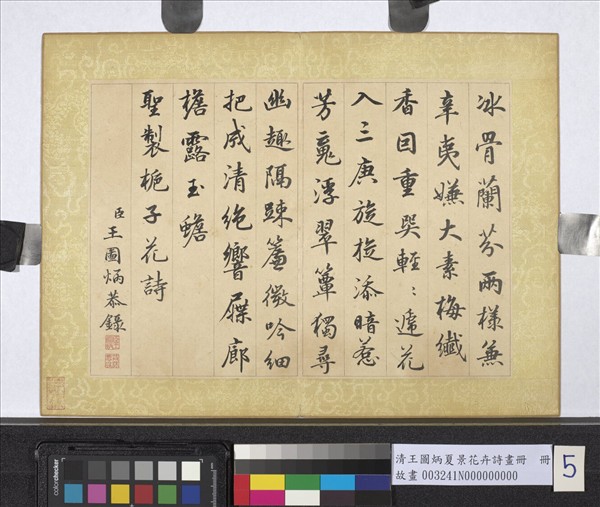 冰骨蘭芬兩樣兼
辛夷嫌大素梅纖
香因重巽輕〻遞花
入三庚旋旋添暗惹
芳浮翠簟獨尋
幽趣隔踈簾微吟細
把成清絶響屧廊
檐露玉蟾
聖製梔子花詩
臣王圖炳恭錄
清王圖炳夏景花卉詩畫冊 冊
故畫 003241N000000000
5
colorchecker